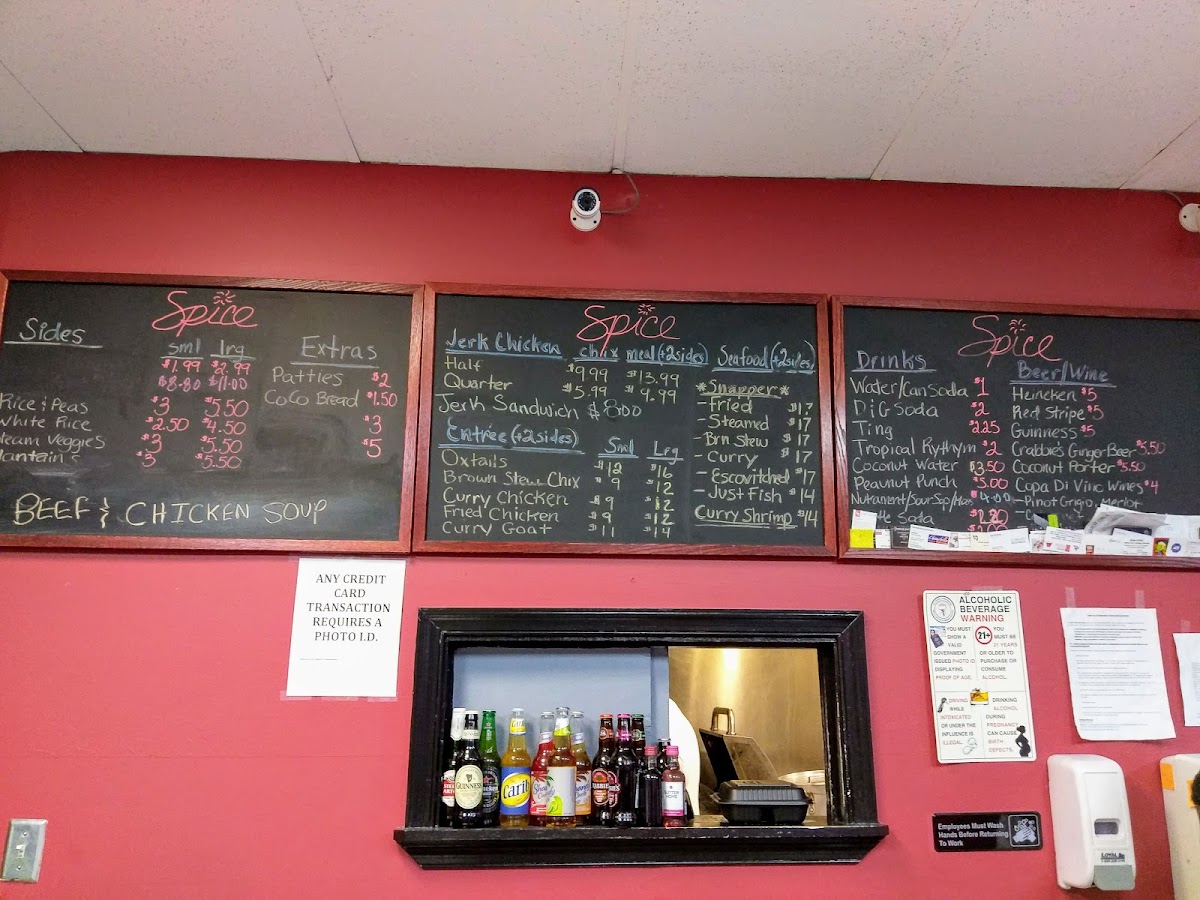 Spice
Sides
sml lrg
$1.99 $2.99
$8.80 $11.00
Rice & Peas $3 $5.50
White Rice $2.50 $4.50
Steam Veggies $3 $5.50
Plantain's $3 $5.50
Extras
Patties $2
CoCo Bread $1.50
$3
$5
BEEF & CHICKEN SOUP
Spice
Jerk Chicken chix meal (+2sides)
Half $9.99 $13.99
Quarter $5.99 $9.99
Jerk Sandwich $8.00
Entrée (+2sides) Sml Lrg
Oxtails $12 $16
Brown Stew Chix $9 $12
Curry Chicken $9 $12
Fried Chicken $9 $12
Curry Goat $11 $14
Seafood (+2sides)
*Snapper*
- Fried $17
- Steamed $17
- Brn Stew $17
- Curry $17
- Escovitched $17
- Just Fish $14
Curry Shrimp $14
Spice
Drinks
Water/Can Soda $1
DiG Soda $2
Ting $2.25
Tropical Rythym $2
Coconut Water $3.50
Peaunut Punch $3.00
$4.00
Soda $2.20
Beer/Wine
Heineken $5
Red Stripe $5
Guinness $5
Crabbies Ginger Beer $5.50
Coconut Porter $5.50
Copa Di Vino Wines $4
- Pinot Grigio, Merlot
ANY CREDIT
CARD
TRANSACTION
REQUIRES A
PHOTO I.D.
ALCOHOLIC
BEVERAGE
WARNING
YOU MUST
SHOW A
VALID
GOVERNMENT
ISSUED PHOTO ID
DISPLAYING
PROOF OF AGE.
21+
YOU
MUST BE
21 YEARS
OR OLDER TO
PURCHASE OR
CONSUME
ALCOHOL.
DRIVING
WHILE
INTOXICATED
OR UNDER THE
INFLUENCE IS
ILLEGAL.
DRINKING
ALCOHOL
DURING
PREGNANCY
CAN CAUSE
BIRTH
DEFECTS.
GUINNESS
Carib
Employees Must Wash
Hands Before Returning
To Work